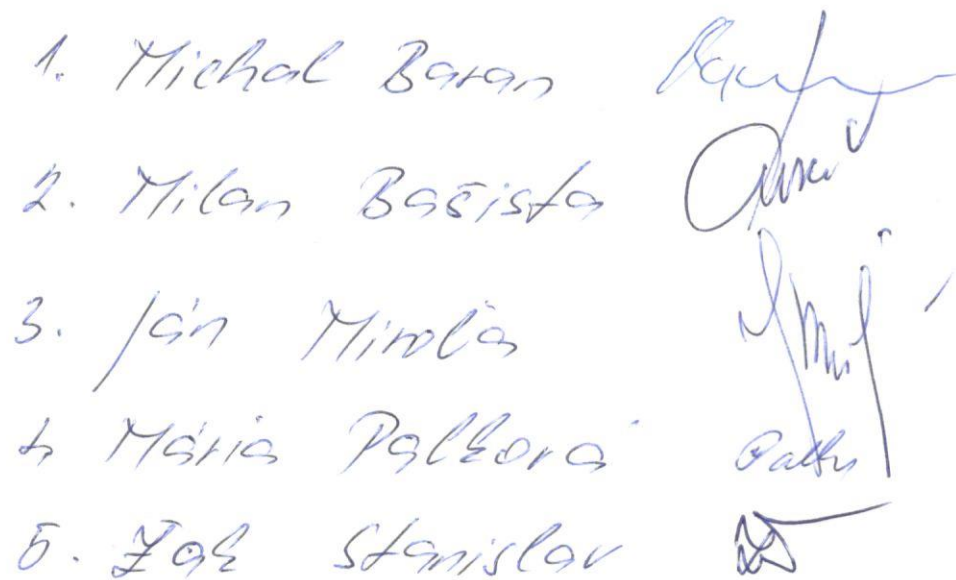 1. Michal Baran
2. Milan Bašista
3. Ján Miroľa
4. Mária Palková
5. Žak Stanislav